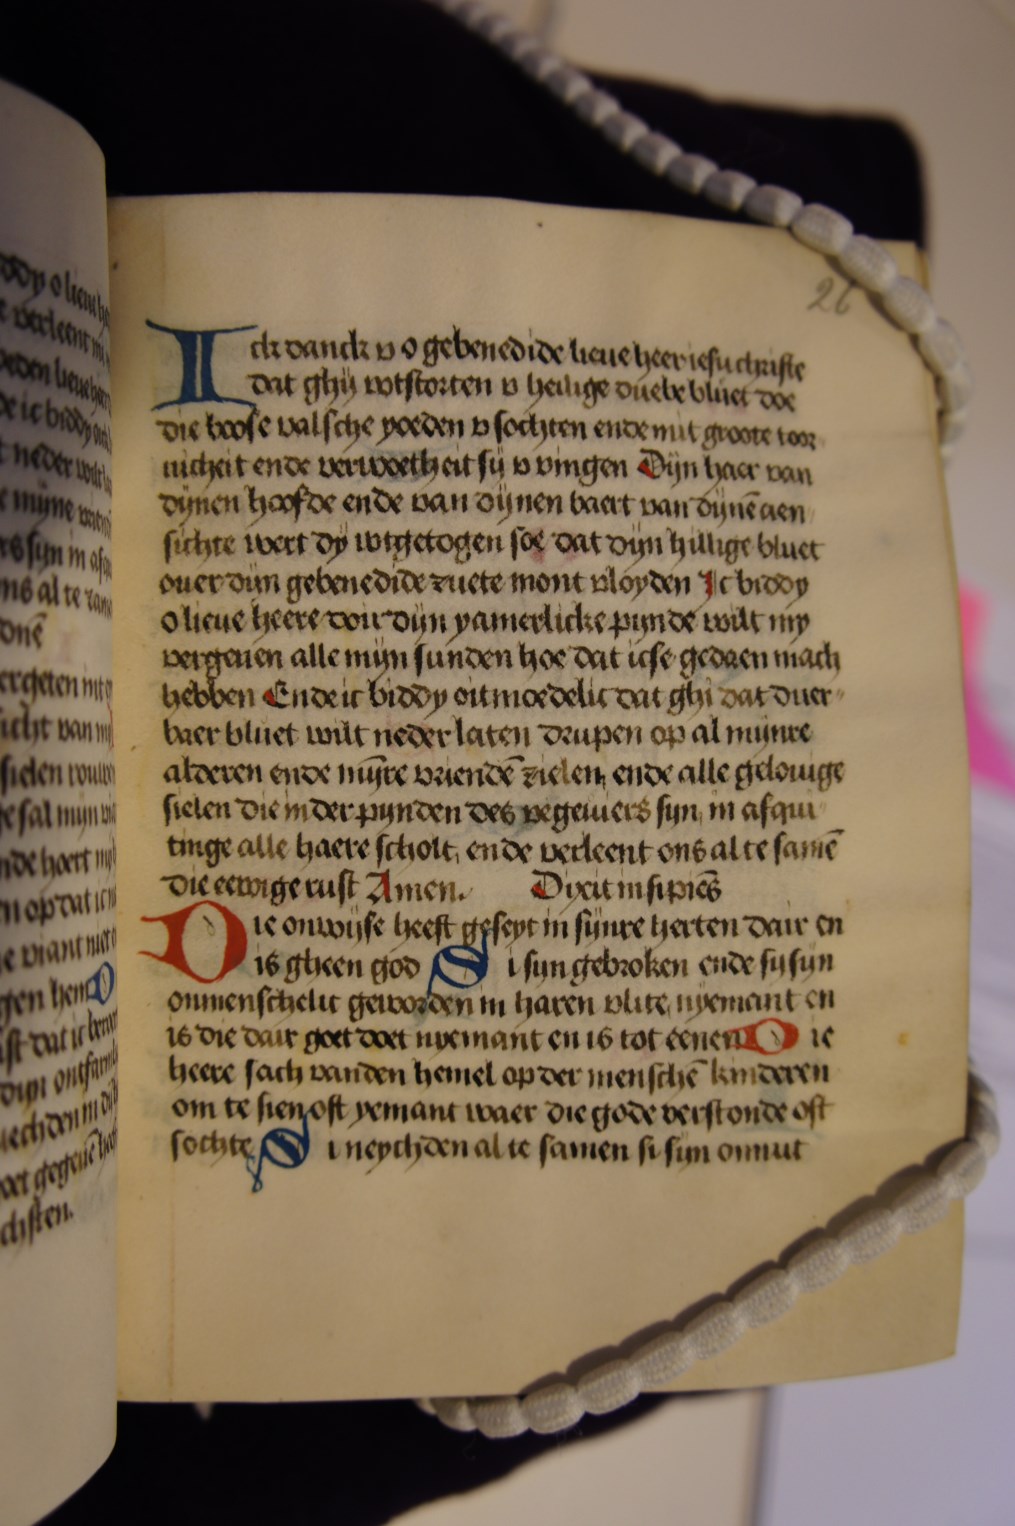 26
Ick danck v o gebenedide lieue heer iesu christe
dat ghij wtstorten v heilige duebe bluet doe
die boose valsche yoeden v sochten ende mit groote toor
nicheit ende verwoetheit sij v vingen Dijn haer van
dijnen hoofde ende van dijnen baert van dijnē aen
sichte wert dy wtgetogen soe dat dijn hillige bluet
ouer dijn gebenedide zuete mont vloyden Ic biddy
o lieue heere doir dijn yamerlicke pynde wilt my
vergeuen alle mijn sunden hoe dat icse gedaen mach
hebben Ende ic biddy oitmoedelic dat ghi dat duer-
baer bluet wilt neder laten drupen op al mijnre
alderen ende mijre vriendē zielen, ende alle gelouige
sielen die in der pynden des vegeuiers sijn, in afqui
tinge alle haere scholt, ende verleent ons al te samē
die eewige rust Amen. Dixit insipiēs
Die onwijse heeft geseyt in sijnre herten dair en
is gheen god Si sijn gebroken ende sij sijn
onmenschelic geworden in haren vlite, nyemant en
is die dair goet doet nyemant en is tot eenen Die
heere sach vanden hemel op der menschē kinderen
om te sien oft yemant waer die gode verstonde oft
sochte Si neychden al te samen si sijn onnut